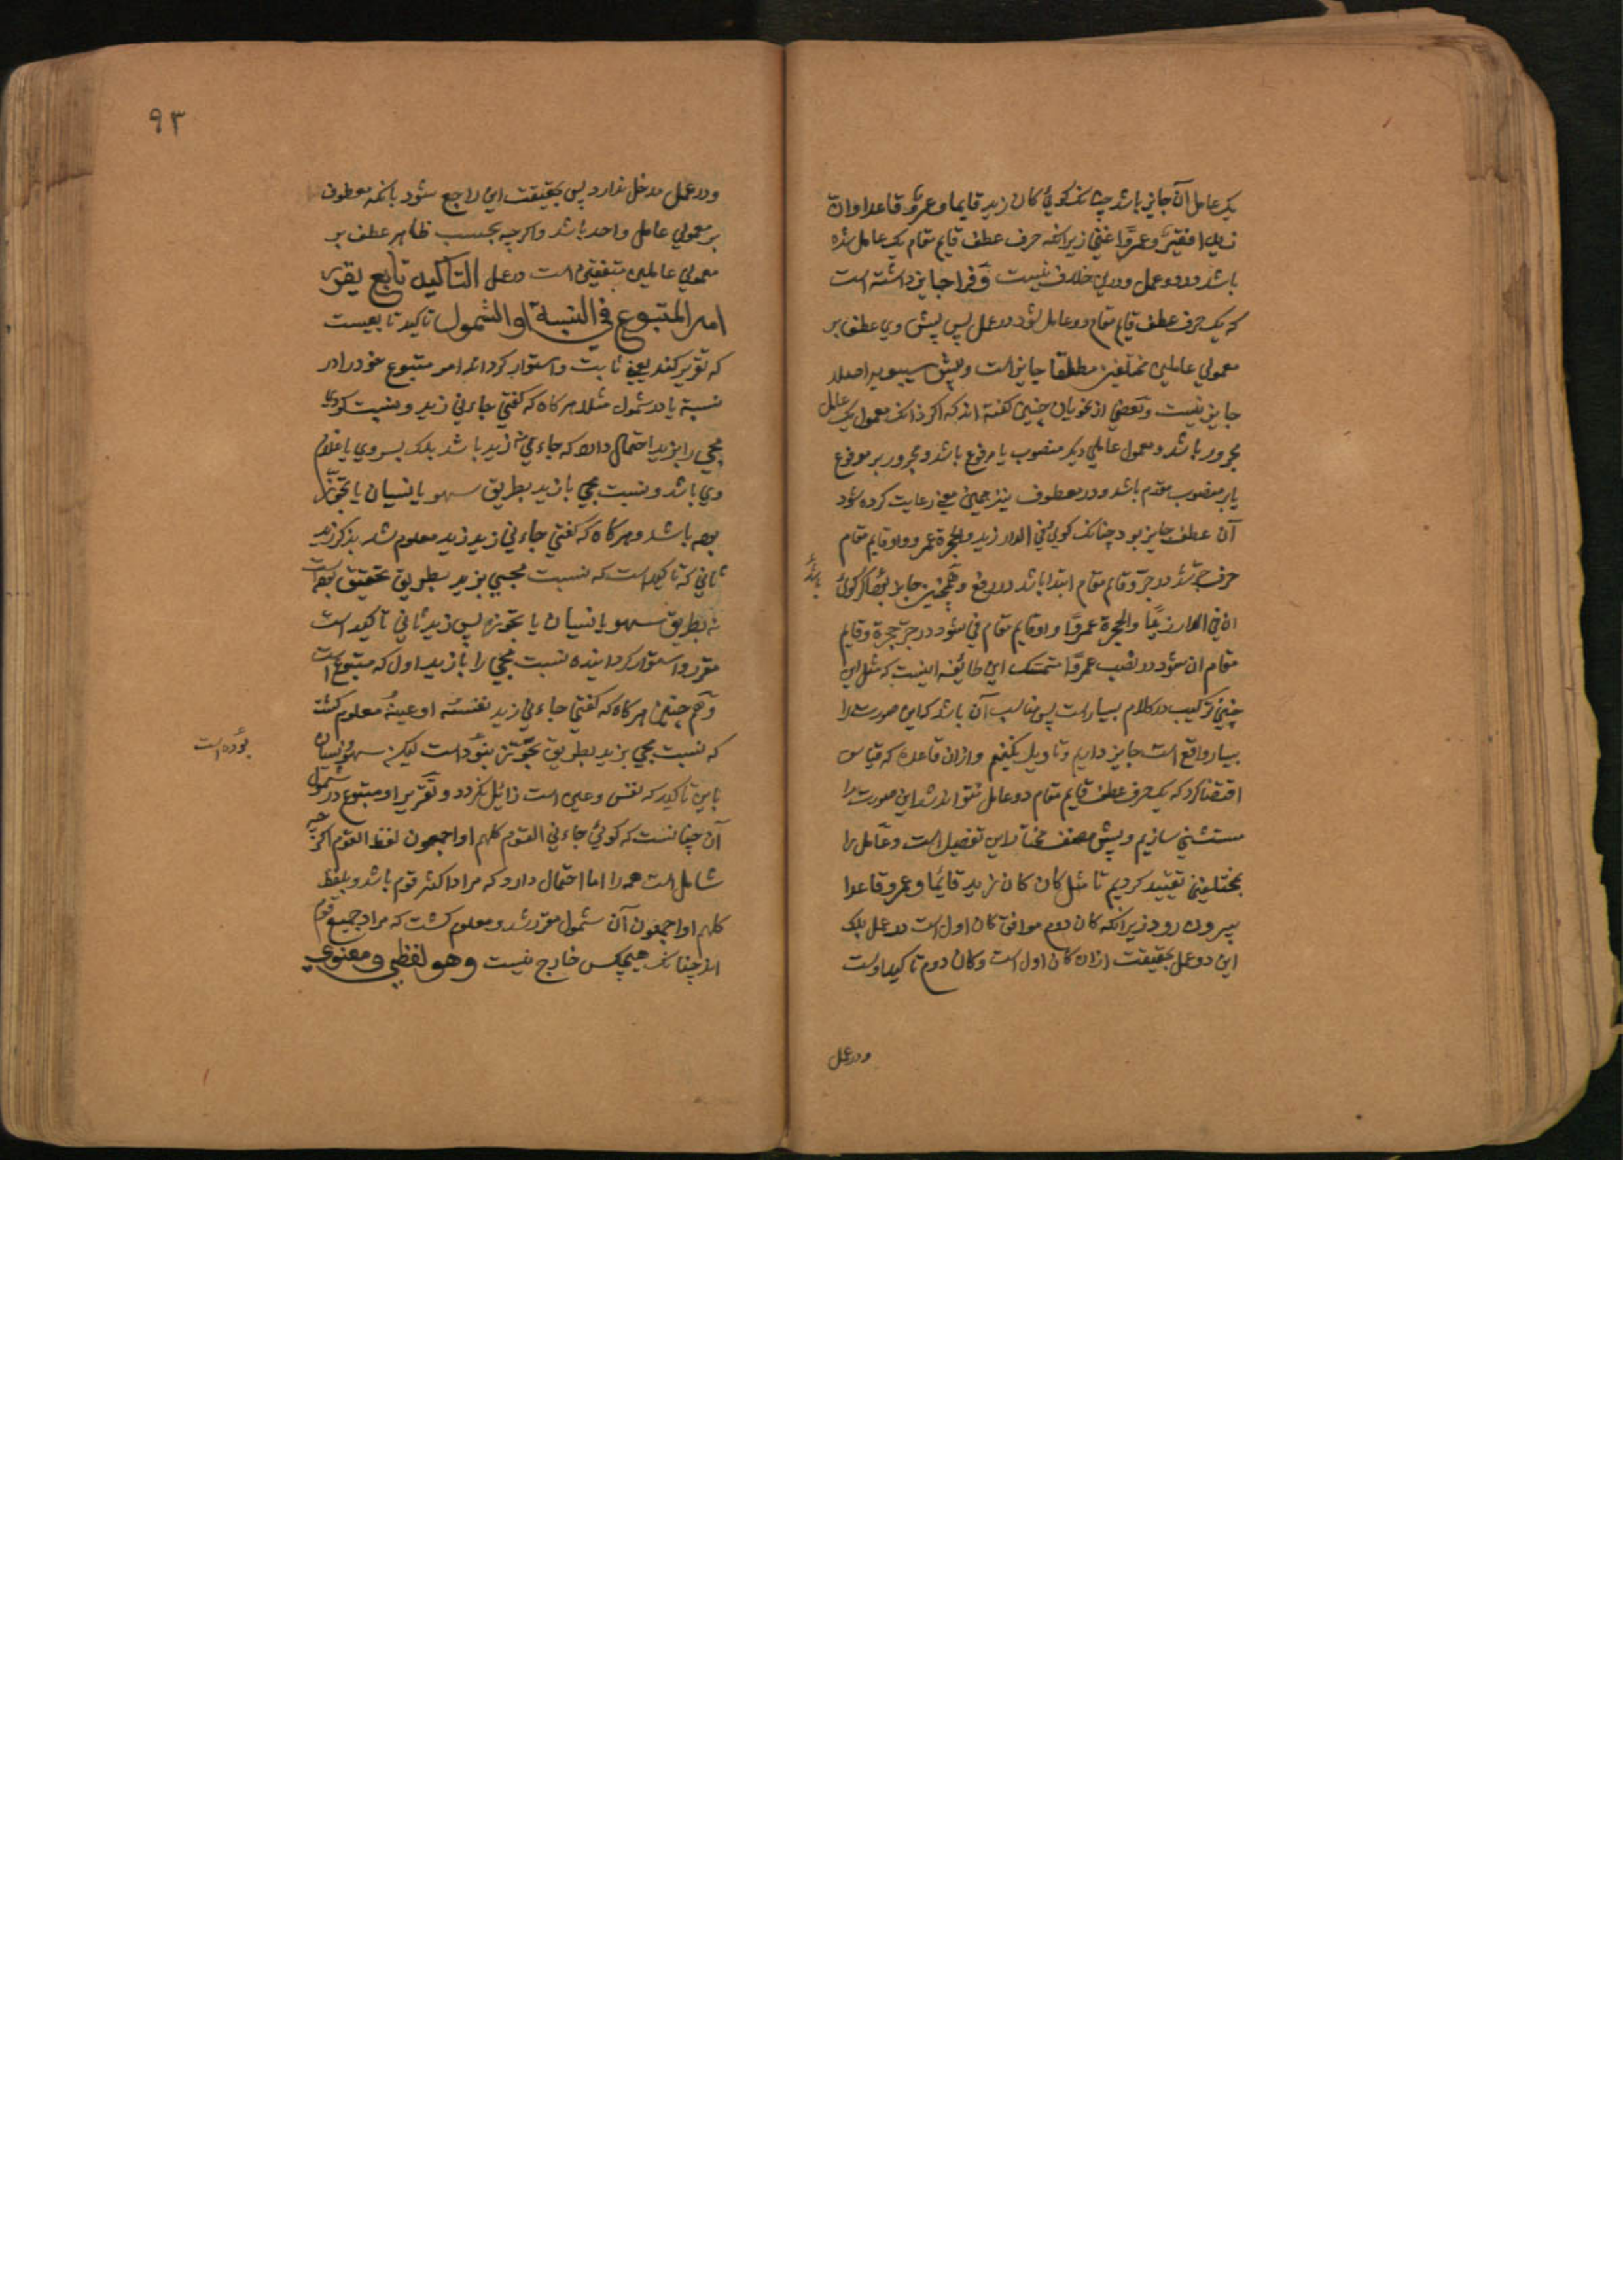 یک عامل آن جایز باشد چنانکه کوئی کان زید قایما و عمرو قاعدا و ان
زیدا فقیر و عمروا غنی زیرا که حرف عطف قایم مقام یک عامل شده
باشد در دو عمل و درین خلاف نیست و فرا جایز داشته است
که یک حرف عطف قایم مقام دو عامل شود در عمل پس پیش وی عطف بر
معمولی عاملین مختلفین مطلقا جایز است و پیش سیبویه اصلا
جایز نیست و بعضی از نحویان چنین کفته اند که اکر زانکه معمول یک عامل
مجرور باشد و معمول عاملی دیکر منصوب یا مرفوع باشد و مجرور بر مرفوع
یا بر منصوب مقدم باشد و در معطوف نیز همین معنی رعایت کرده شود
آن عطف جایز بود چنانکه کویی فی الدار زید و الحجرة عمرو واو قایم مقام
حرف جر شد در جر و قایم مقام ابتدا باشد در رفع و همچنین جایز بود اکر کوئی
ان فی الدار زیدا والحجرة عمروا واو قایم مقام فی شود در جر حجرة و قایم
مقام ان شود در نصب عمروا متمسک این طائفه اینست که مثل این
چنین ترکیب در کلام بسیار است پس مناسب آن باشد که این صورت را
بسیار واقع است جایز داریم و تاویل نکنیم و از ان قاعده که قیاس
اقتضا کرد که یک حرف عطف قایم مقام دو عامل نتواند شد این صورت را
مستثنی سازیم و پیش مصنف مختار این تفصیل است و عامل را
بمختلفین تقیید کردیم تا مثل کان کان زید قائما و عمرو قاعدا
بیرون رود زیرا که کان دوم موافق کان اول است در عمل بلکه
این دو عمل بحقیقت از ان کان اول است و کان دوم تاکید اوست
در عمل
۹۳
و در عمل مدخل ندارد پس بحقیقت این راجع شود بانکه معطوف
بر معمولی عامل واحد باشد و اکرچه بحسب ظاهر عطف بر
معمولی عاملین متفقین است در عمل التاکید تابع یقرر
امر المتبوع فی النسبة او الشمول تاکید تابعیست
که تقریر کند یعنی ثابت و استوار کرداند امر متبوع خود را در
نسبة یا در شمول مثلا هر کاه که کفتی جاءنی زید و نسبت کردی
مجی را بزید احتمال دارد که جاءی نه زید باشد بلکه پسر وی یا غلام
وی باشد و نسبت مجی با زید بطریق سهو یا نسیان یا تجوز
بوده باشد و هر کاه که کفتی جاءنی زید زید معلوم شد بذکر زید
ثانی که تاکید است که نسبت مجیی بزید بطریق تحقیق بوده است
نه بطریق سهو یا نسیان یا تجوز پس زید ثانی تاکید است
مقرر و استوار کرداینده نسبت مجی را با زید اول که متبوع است
و هم چنین هر کاه که کفتی جاءنی زید نفسه او عینه معلوم کشت
که نسبت مجی بزید بطریق تجوز نبوده است لیکن سهو و نسیان
بوده است
باین تاکید که نفس و عین است زائل نکردد و تقریر او متبوع در شمول
آن چنانست که کوئی جاءنی القوم کلهم او اجمعون لفظ القوم اکر چه
شامل است همه را اما احتمال دارد که مراد اکثر قوم باشد و بلفظ
کلهم او اجمعون آن شمول مقرر شد و معلوم کشت که مراد جمیع قوم
اند چنانکه هیچکس خارج نیست و هو لفظی و معنوی